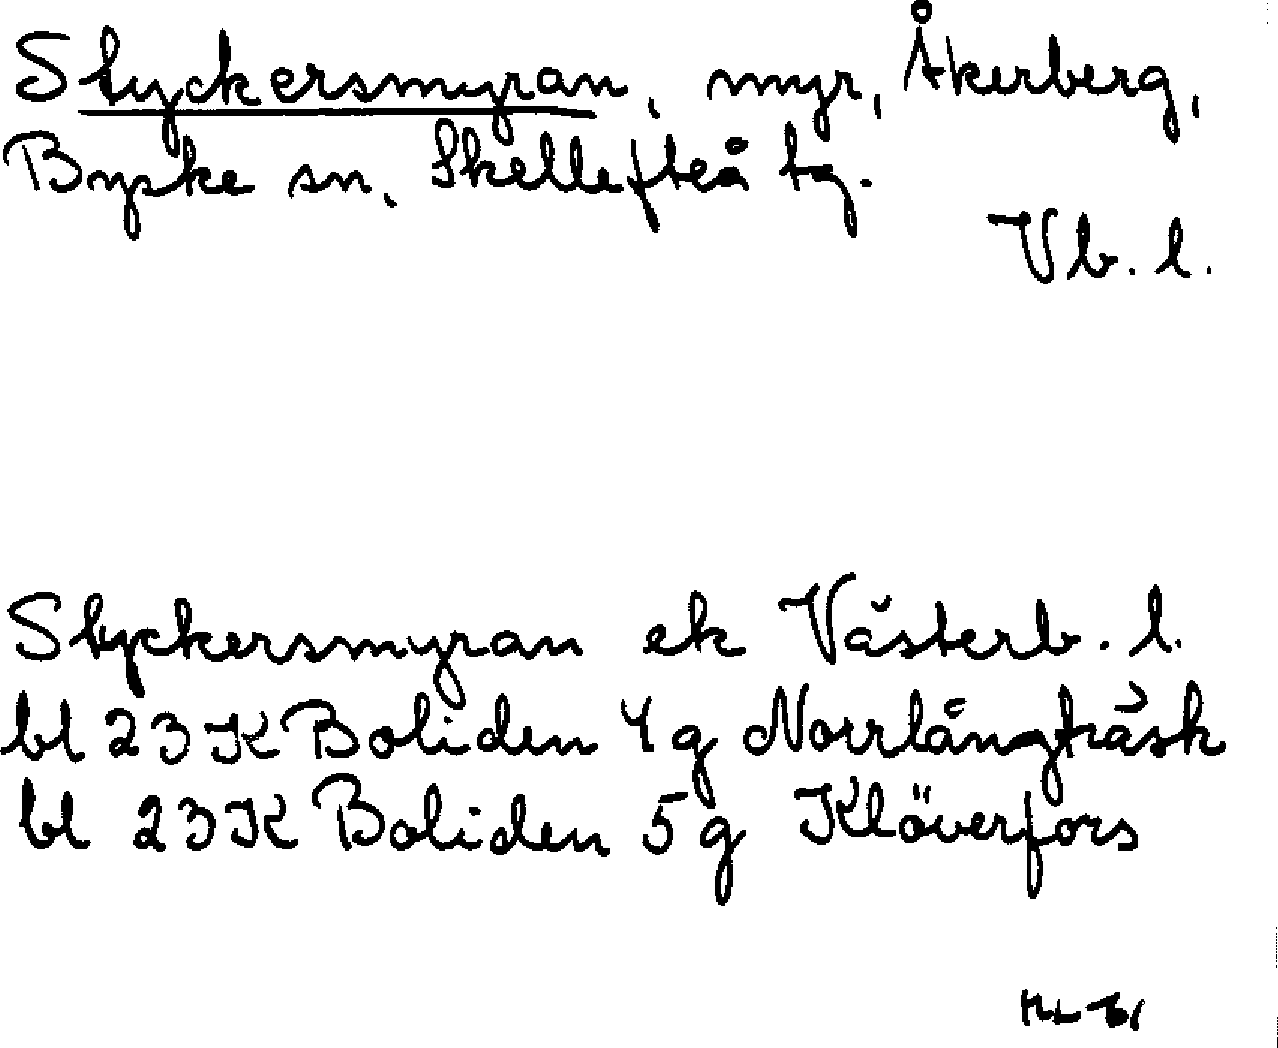 Styckersmyran, myr, Åkerberg,
Byske sn, Skellefteå tg.
Vb. l.
Styckersmyran ek Västerb. l.
bl 23K Boliden 4g Norrlångträsk
bl 23K Boliden 5g Klöverfors